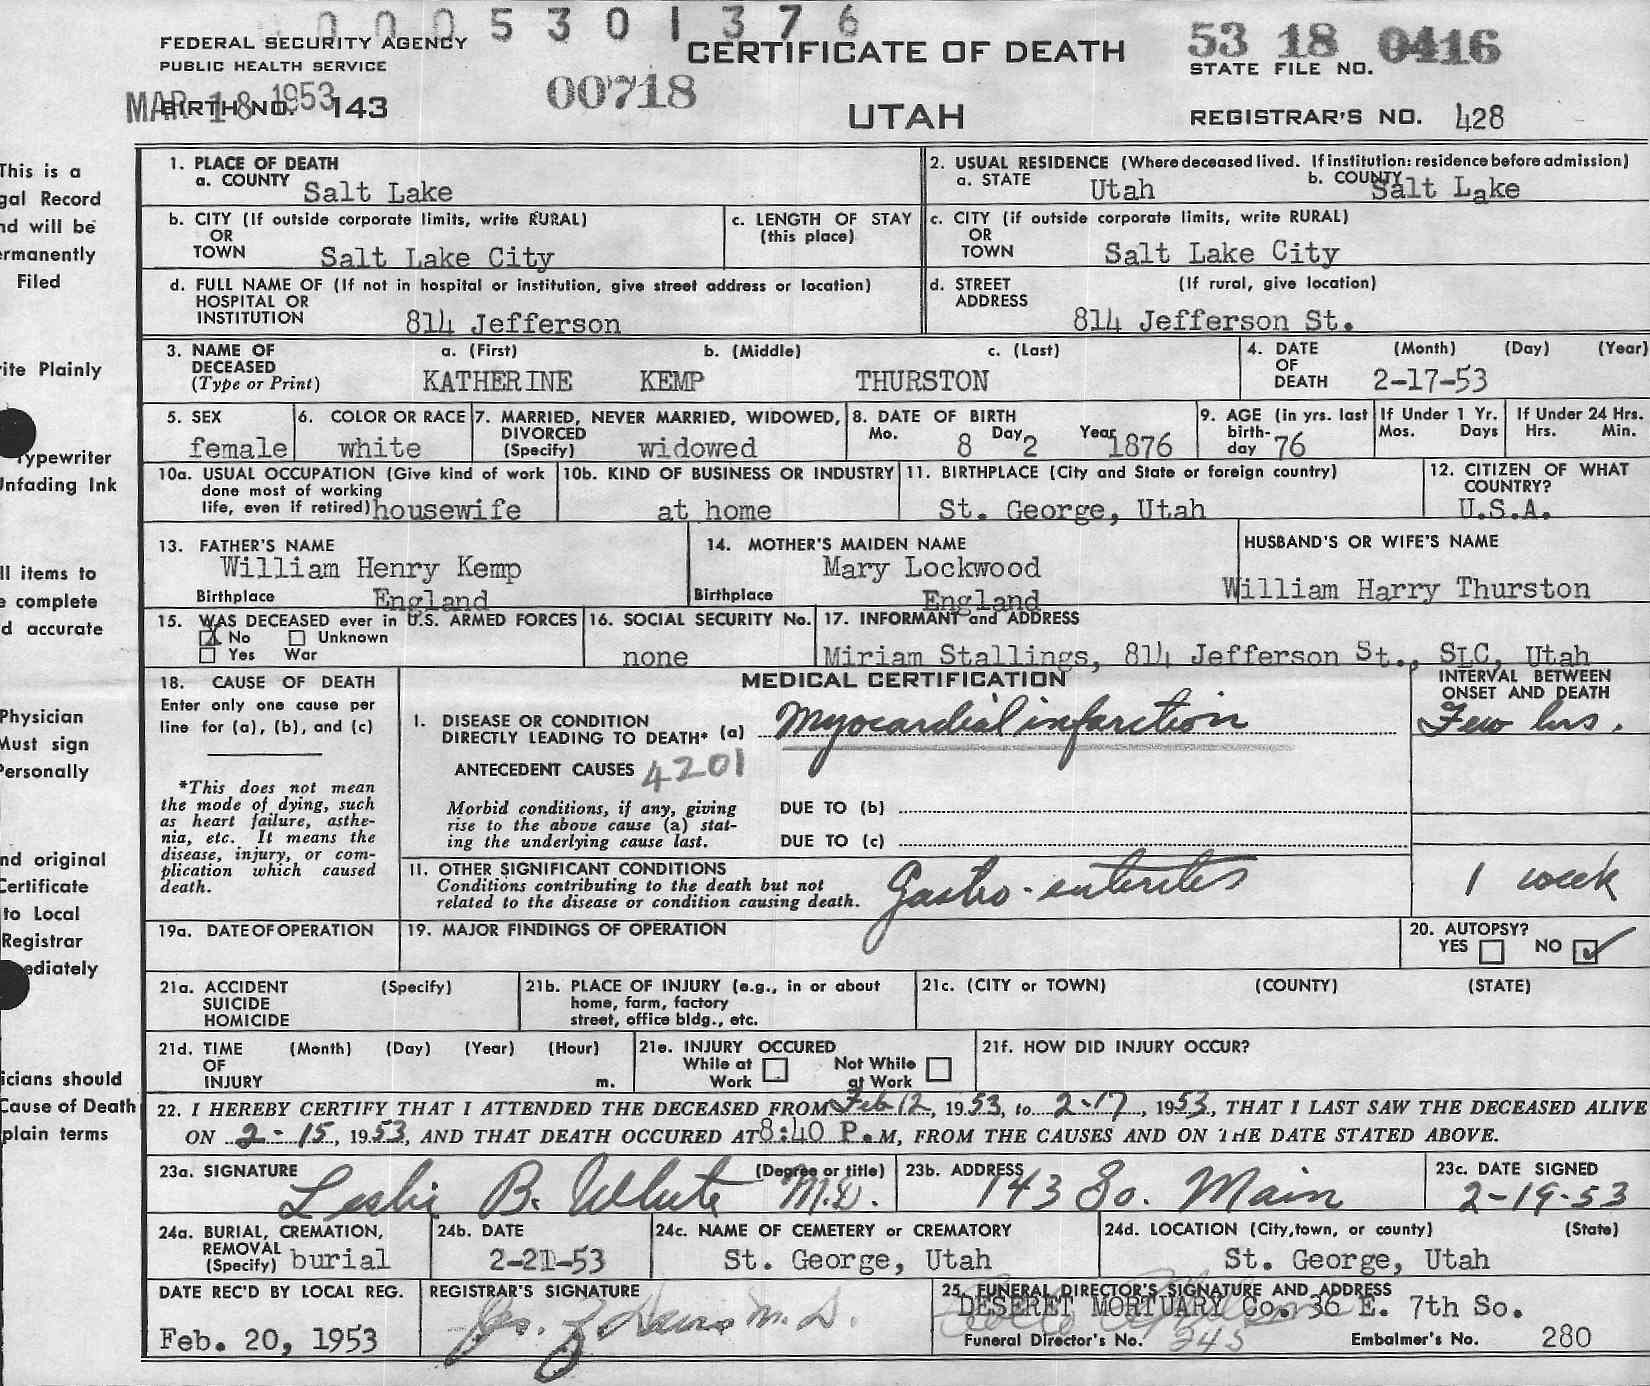 000530 1376
FEDERAL SECURITY AGENCY
PUBLIC HEALTH SERVICE
CERTIFICATE OF DEATH
53 18 0416
STATE FILE NO.
MAR 18 1953
BIRTH NO. 143
00718
UTAH
REGISTRAR'S NO. 428
This is a
gal Record
nd will be
rmanently
Filed
ite Plainly
Typewriter
Unfading Ink
ll items to
e complete
d accurate
Physician
Must sign
Personally
nd original
Certificate
to Local
Registrar
mediately
icians should
Cause of Death
plain terms
1. PLACE OF DEATH
a. COUNTY Salt Lake
2. USUAL RESIDENCE (Where deceased lived. If institution: residence before admission)
a. STATE Utah b. COUNTY Salt Lake
b. CITY (If outside corporate limits, write RURAL)
OR
TOWN Salt Lake City
c. LENGTH OF STAY
(this place)
c. CITY (if outside corporate limits, write RURAL)
OR
TOWN Salt Lake City
d. FULL NAME OF (If not in hospital or institution, give street address or location)
HOSPITAL OR
INSTITUTION 814 Jefferson
d. STREET (If rural, give location)
ADDRESS 814 Jefferson St.
3. NAME OF DECEASED
(Type or Print)
a. (First) b. (Middle) c. (Last)
KATHERINE KEMP THURSTON
4. DATE OF DEATH (Month) (Day) (Year)
2-17-53
5. SEX
female
6. COLOR OR RACE
white
7. MARRIED, NEVER MARRIED, WIDOWED,
DIVORCED
(Specify) widowed
8. DATE OF BIRTH
Mo. 8 Day 2 Year 1876
9. AGE (in yrs. last
birth-
day 76
If Under 1 Yr.
Mos. Days
If Under 24 Hrs.
Hrs. Min.
10a. USUAL OCCUPATION (Give kind of work
done most of working
life, even if retired) housewife
10b. KIND OF BUSINESS OR INDUSTRY
at home
11. BIRTHPLACE (City and State or foreign country)
St. George, Utah
12. CITIZEN OF WHAT
COUNTRY?
U.S.A.
13. FATHER'S NAME
William Henry Kemp
Birthplace England
14. MOTHER'S MAIDEN NAME
Mary Lockwood
Birthplace England
HUSBAND'S OR WIFE'S NAME
William Harry Thurston
15. WAS DECEASED ever in U.S. ARMED FORCES
X No Unknown
Yes War
16. SOCIAL SECURITY No.
none
17. INFORMANT and ADDRESS
Miriam Stallings, 814 Jefferson St., SLC, Utah
18. CAUSE OF DEATH
Enter only one cause per
line for (a), (b), and (c)
*This does not mean
the mode of dying, such
as heart failure, asthe-
nia, etc. It means the
disease, injury, or com-
plication which caused
death.
MEDICAL CERTIFICATION
INTERVAL BETWEEN
ONSET AND DEATH
I. DISEASE OR CONDITION
DIRECTLY LEADING TO DEATH* (a) Myocardial infarction Few hrs.
ANTECEDENT CAUSES 4201
Morbid conditions, if any, giving
rise to the above cause (a) stat-
ing the underlying cause last.
DUE TO (b)
DUE TO (c)
II. OTHER SIGNIFICANT CONDITIONS
Conditions contributing to the death but not
related to the disease or condition causing death.
Gastro-enterites 1 week
19a. DATE OF OPERATION
19. MAJOR FINDINGS OF OPERATION
20. AUTOPSY?
YES NO ✓
21a. ACCIDENT (Specify)
SUICIDE
HOMICIDE
21b. PLACE OF INJURY (e.g., in or about
home, farm, factory
street, office bldg., etc.
21c. (CITY or TOWN) (COUNTY) (STATE)
21d. TIME (Month) (Day) (Year) (Hour)
OF
INJURY m.
21e. INJURY OCCURED
While at Work Not While at Work
21f. HOW DID INJURY OCCUR?
22. I HEREBY CERTIFY THAT I ATTENDED THE DECEASED FROM Feb 12, 1953, to 2-17, 1953, THAT I LAST SAW THE DECEASED ALIVE
ON 2-15, 1953, AND THAT DEATH OCCURED AT 8:40 P.M, FROM THE CAUSES AND ON THE DATE STATED ABOVE.
23a. SIGNATURE (Degree or title)
Leslie B. White M.D.
23b. ADDRESS
143 So. Main
23c. DATE SIGNED
2-19-53
24a. BURIAL, CREMATION,
REMOVAL
(Specify) burial
24b. DATE
2-21-53
24c. NAME OF CEMETERY or CREMATORY
St. George, Utah
24d. LOCATION (City, town, or county) (State)
St. George, Utah
DATE REC'D BY LOCAL REG.
Feb. 20, 1953
REGISTRAR'S SIGNATURE
M.D.
25. FUNERAL DIRECTOR'S SIGNATURE AND ADDRESS
DESERET MORTUARY Co. 36 E. 7th So.
Funeral Director's No. 245 Embalmer's No. 280